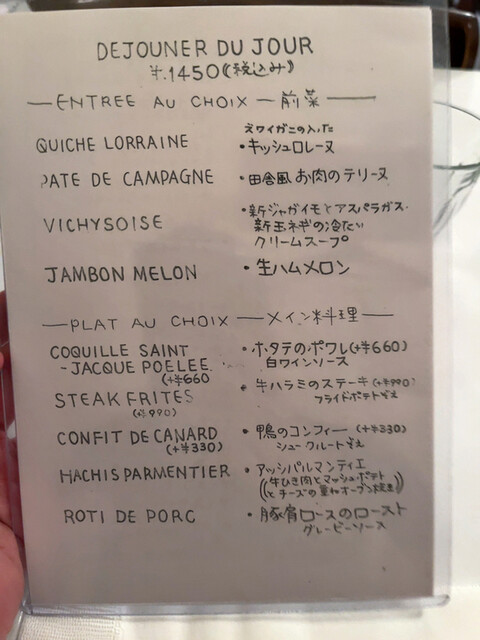 DEJOUNER DU JOUR
¥.1450(税込み)
ENTREE AU CHOIX — 前菜
QUICHE LORRAINE
エスカルゴの入った
・キッシュロレーヌ
PATE DE CAMPAGNE
・田舎風 お肉のテリーヌ
VICHYSOISE
・新ジャガイモとアスパラガス・
新玉ネギの冷たい
クリームスープ
JAMBON MELON
・生ハムメロン
PLAT AU CHOIX — メイン料理
COQUILLE SAINT
-JACQUE POELEE
(+¥660
・ホタテのポワレ(+¥660)
白ワインソース
STEAK FRITES
(+¥990)
・牛ハラミのステーキ(+¥990)
フライドポテト添え
CONFIT DE CANARD
(+¥330)
・鴨のコンフィー (+¥330)
シュークルート添え
HACHIS PARMENTIER
・アッシパルマンティエ
(牛ひき肉とマッシュポテト
とチーズの重ねオーブン焼き)
ROTI DE PORC
・豚肩ロースのロースト
グレービーソース